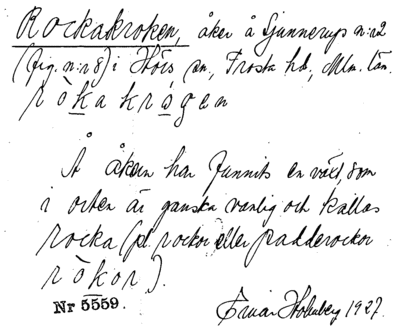 Rockakroken, åker å Ljunnerups n:r2
(fig. n:r 8) i Hörs sn, Frosta hd, Mlm. län.
ròkakrógen
Å åkern har funnits en växt, som
i orten är ganska vanlig och kallas
rocka (pl rockor eller padderockor
ròkor).
Nr 5559.
Ernar Holmberg 1927.